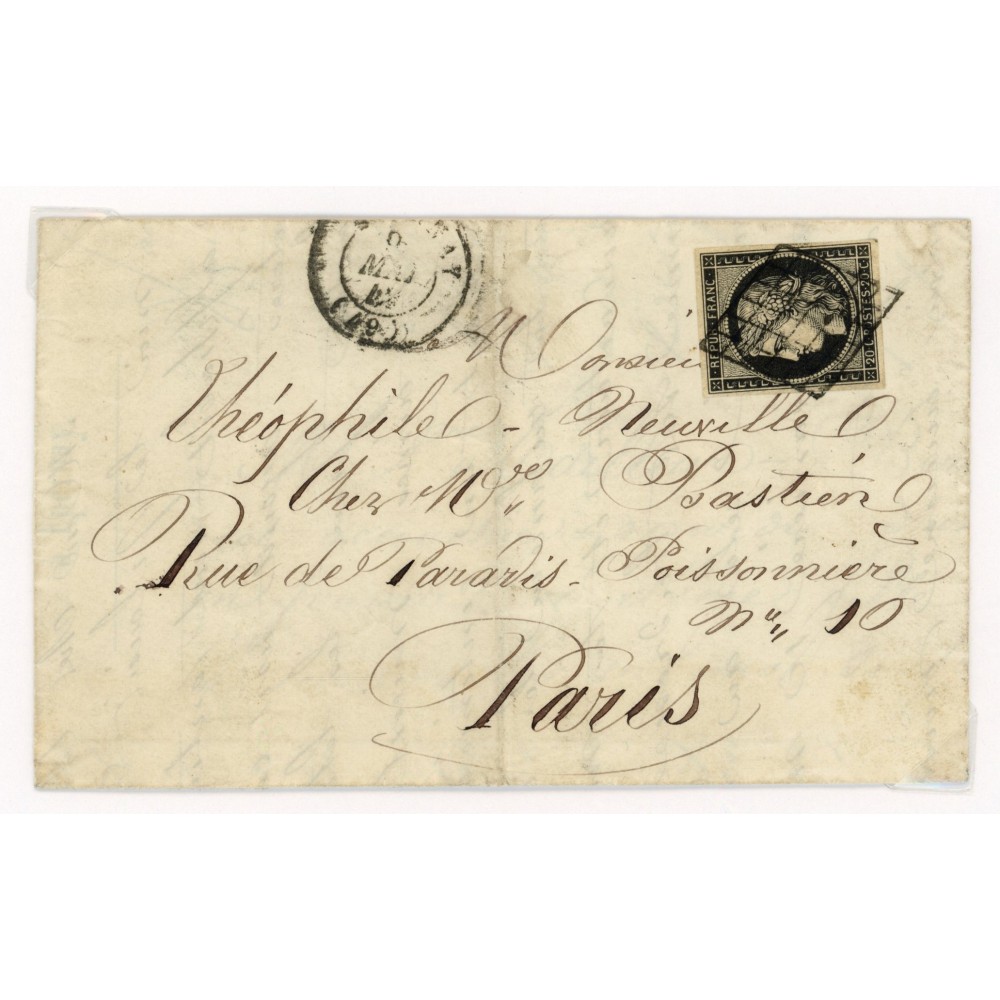 MAI
(49)
REPUB. FRANC.
20
Monsieur
Théophile - Neuville
Chez Mr.
Bastien
Rue de Paradis - Poissonnière
10
Paris